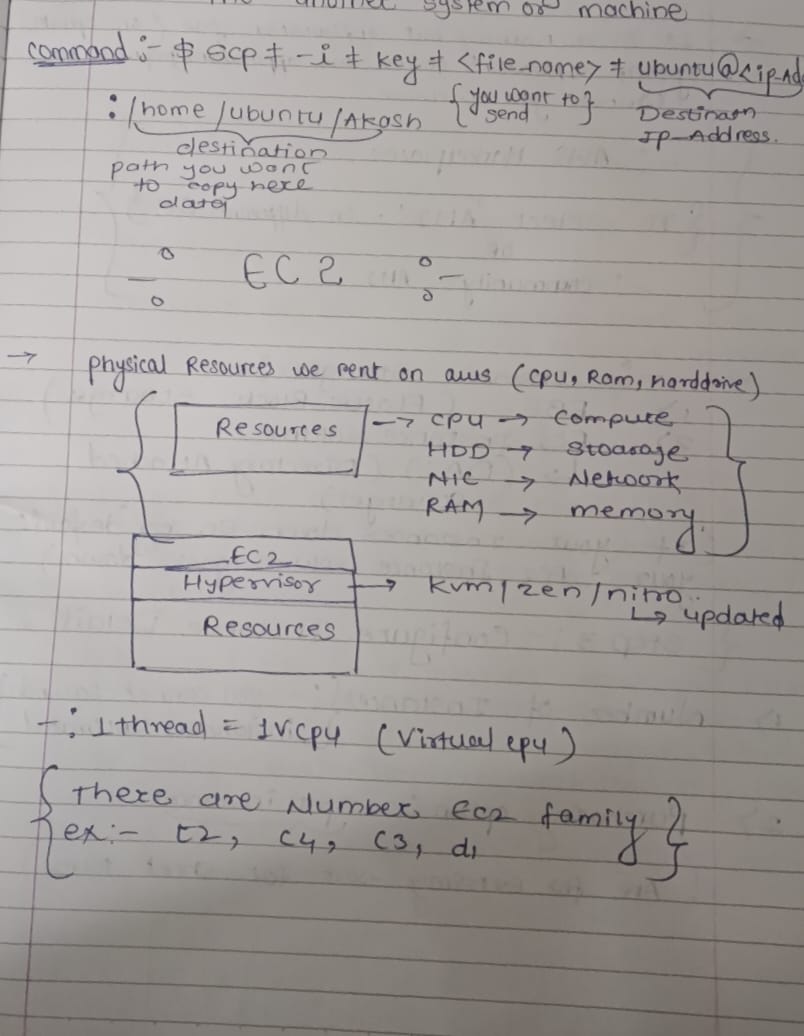 another system or machine
command :- $ scp ≠ -i ≠ key ≠ <file_name> ≠ ubuntu@<ip_Ad
:/home/ubuntu/Akash {you want to send} Destinatn
Ip_Address.
destination
path you want
to copy here
data
:- EC2 :-
→ physical Resources we rent on aws (cpu, Ram, harddrive)
Resources → cpu → compute
HDD → Stoarage
NIC → Network
RAM → memory.
EC2
Hypervisor → kvm/zen/nitro..
↳ updated
Resources
-: 1 thread = 1V.cpu (Virtual cpu)
{There are Number EC2 family}
ex:- t2, C4, C3, d1